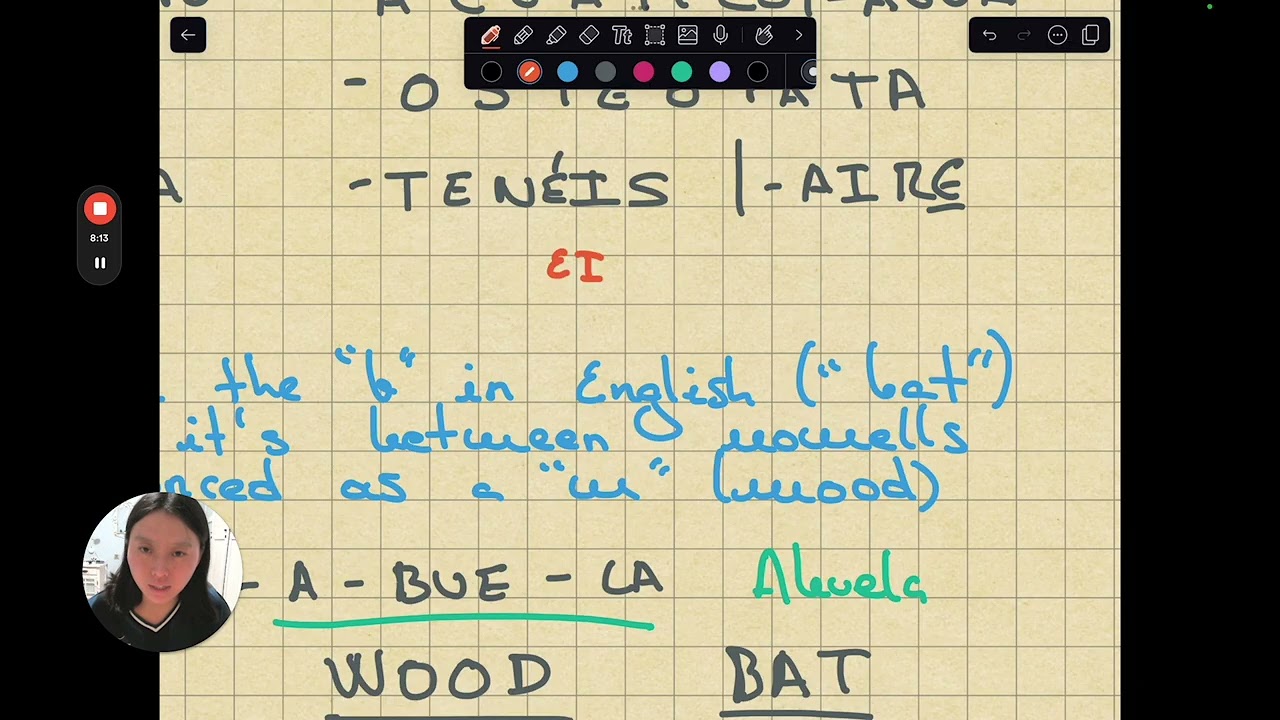 - OSTEOPATA
A - TENÉIS | - AIRE
EI
. the "b" in English ("bat")
it's between wowells
nced as a "w" (wood)
- A - BUE - LA Abuela
WOOD BAT
Tt
8:13